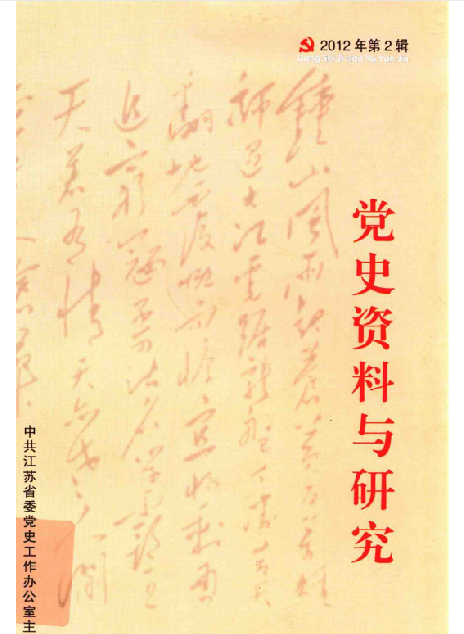 2012年第2辑
Dang Shi Zi Liao Yu Yan Jiu
党史资料与研究
鍾山風雨起蒼黃百万雄
師過大江虎踞龍盤今勝昔天
翻地覆慨而慷宜將剩勇
追窮寇不可沽名學霸王
天若有情天亦老人間
中共江苏省委党史工作办公室主